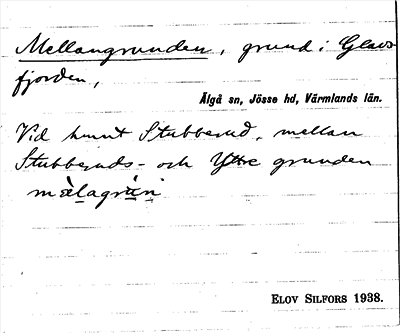 Mellangrunden, grund i Glavs-
fjorden,
Älgå sn, Jösse hd, Värmlands län.
Vid Stubberud, mellan
Stubberuds- och Yttre grunden
ELOV SILFORS 1938.